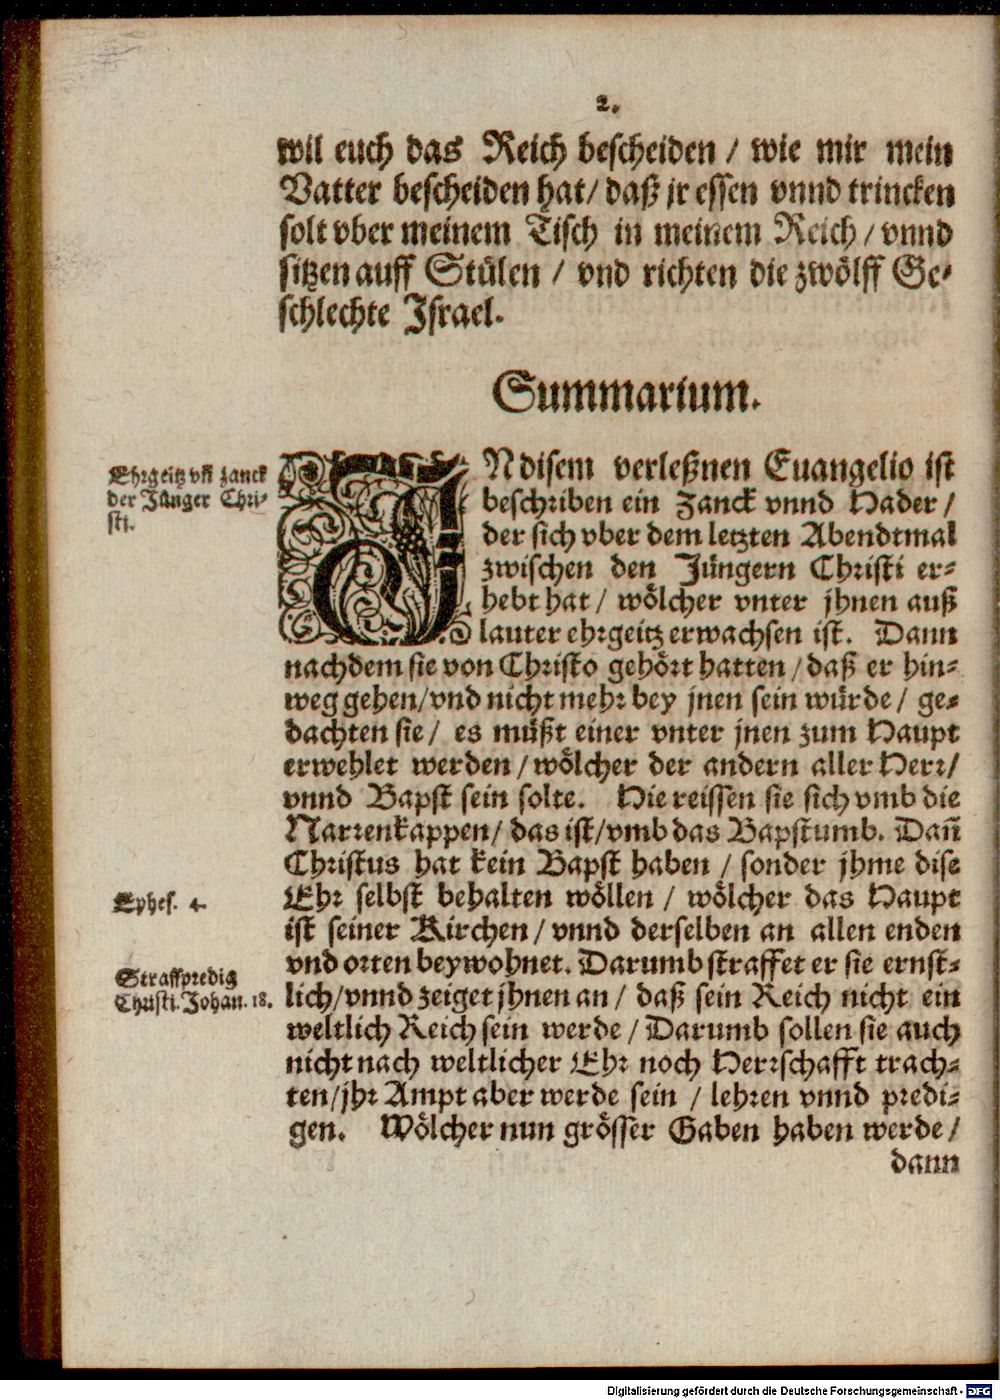 2.
wil euch das Reich bescheiden / wie mir mein
Vatter bescheiden hat / daß jr essen vnnd trincken
solt vber meinem Tisch in meinem Reich / vnnd
sitzen auff Stülen / vnd richten die zwölff Ge-
schlechte Israel.
Summarium.
Ehrgeitz vñ zanck
der Jünger Chri-
sti.
INdisem verleßnen Euangelio ist
beschriben ein Zanck vnnd Hader /
der sich vber dem letzten Abendtmal
zwischen den Jüngern Christi er-
hebt hat / wölcher vnter jhnen auß
lauter ehrgeitz erwachsen ist. Dann
nachdem sie von Christo gehört hatten / daß er hin-
weg gehen / vnd nicht mehr bey jnen sein würde / ge-
dachten sie / es müßt einer vnter jnen zum Haupt
erwehlet werden / wölcher der andern aller Herr /
vnnd Bapst sein solte. Hie reissen sie sich vmb die
Narrenkappen / das ist / vmb das Bapstumb. Dañ
Christus hat kein Bapst haben / sonder jhme dise
Ehr selbst behalten wöllen / wölcher das Haupt
Ephes. 4.
ist seiner Kirchen / vnnd derselben an allen enden
vnd orten beywohnet. Darumb straffet er sie ernst-
Straffpredig
Christi. Johan. 18.
lich / vnnd zeiget jhnen an / daß sein Reich nicht ein
weltlich Reich sein werde / Darumb sollen sie auch
nicht nach weltlicher Ehr noch Herrschafft trach-
ten / jhr Ampt aber werde sein / lehren vnnd predi-
gen. Wölcher nun grösser Gaben haben werde /
dann
Digitalisierung gefördert durch die Deutsche Forschungsgemeinschaft - DFG